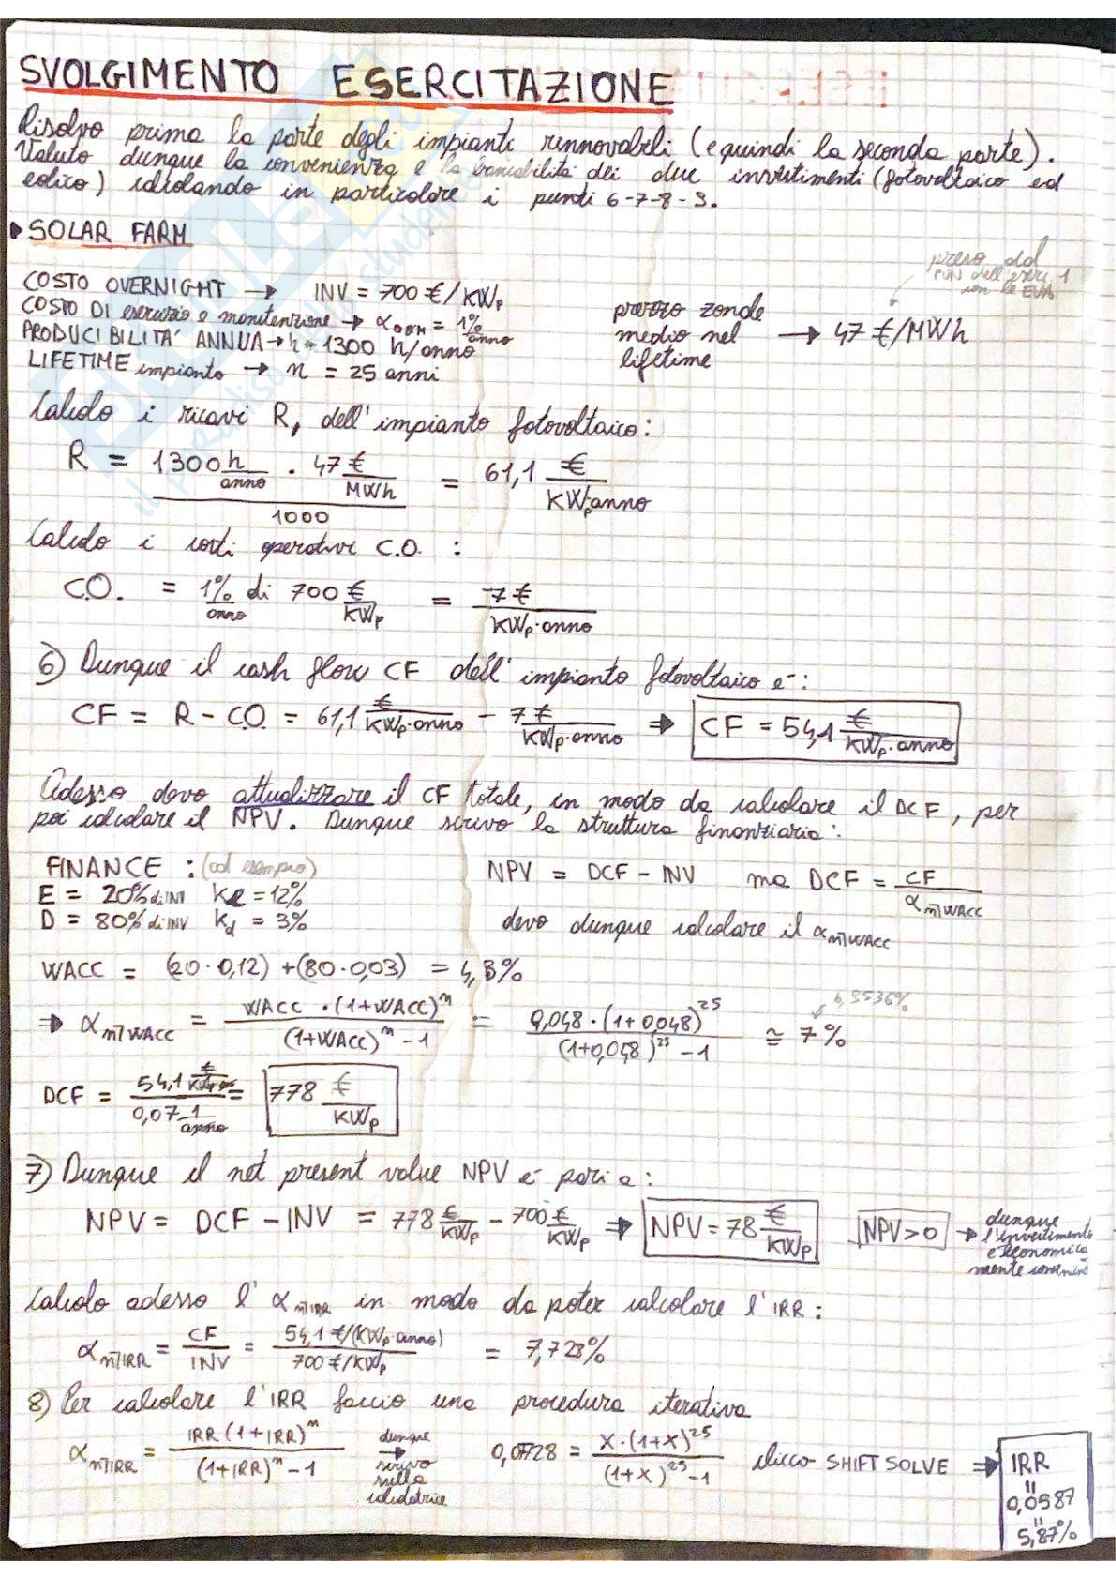 SVOLGIMENTO ESERCITAZIONE
Risolvo prima la parte degli impianti rinnovabili (e quindi la seconda parte).
Valuto dunque la convenienza e la bancabilità dei due investimenti (fotovoltaico ed
eolico) calcolando in particolare i punti 6-7-8-9.
SOLAR FARM
COSTO OVERNIGHT → INV = 700 €/KWp
COSTO DI esercizio e manutenzione → αO&M = 1%/anno
PRODUCIBILITA' ANNUA → h = 1300 h/anno
LIFETIME impianto → n = 25 anni
prezzo zonale medio nel lifetime → 47 €/MWh
preso dal PUN dell'eserc. 1
Calcolo i ricavi R, dell'impianto fotovoltaico:
R = 1300 h/anno · 47 €/MWh / 1000 = 61,1 €/KWp·anno
Calcolo i costi operativi C.O. :
C.O. = 1%/anno di 700 €/KWp = 7 €/KWp·anno
6) Dunque il cash flow CF dell'impianto fotovoltaico è:
CF = R - C.O. = 61,1 €/KWp·anno - 7 €/KWp·anno ⇒ CF = 54,1 €/KWp·anno
Adesso devo attualizzare il CF totale, in modo da calcolare il DCF, per
poi calcolare il NPV. Dunque scrivo la struttura finanziaria:
FINANCE : (ad esempio)
E = 20% di INV ke = 12%
D = 80% di INV kd = 3%
NPV = DCF - INV ma DCF = CF / αn¬WACC
devo dunque calcolare il αn¬WACC
WACC = (20·0,12) + (80·0,03) = 4,8%
⇒ αn¬WACC = WACC·(1+WACC)^n / (1+WACC)^n - 1 = 0,048·(1+0,048)^25 / (1+0,048)^25 - 1 ≅ 7%
6,9536%
DCF = 54,1 / 0,07 1/anno = 778 €/KWp
7) Dunque il net present value NPV è pari a:
NPV = DCF - INV = 778 €/KWp - 700 €/KWp ⇒ NPV = 78 €/KWp
NPV>0 → dunque l'investimento è economicamente
Calcolo adesso l' αn¬IRR in modo da poter calcolare l'IRR:
αn¬IRR = CF / INV = 54,1 €/(KWp·anno) / 700 €/KWp = 7,728%
8) Per calcolare l'IRR faccio una procedura iterativa
αn¬IRR = IRR(1+IRR)^n / (1+IRR)^n - 1 dunque → scrivo nella calcolatrice 0,0728 = X·(1+X)^25 / (1+X)^25 - 1 clicco SHIFT SOLVE ⇒ IRR = 0,0587 = 5,87%